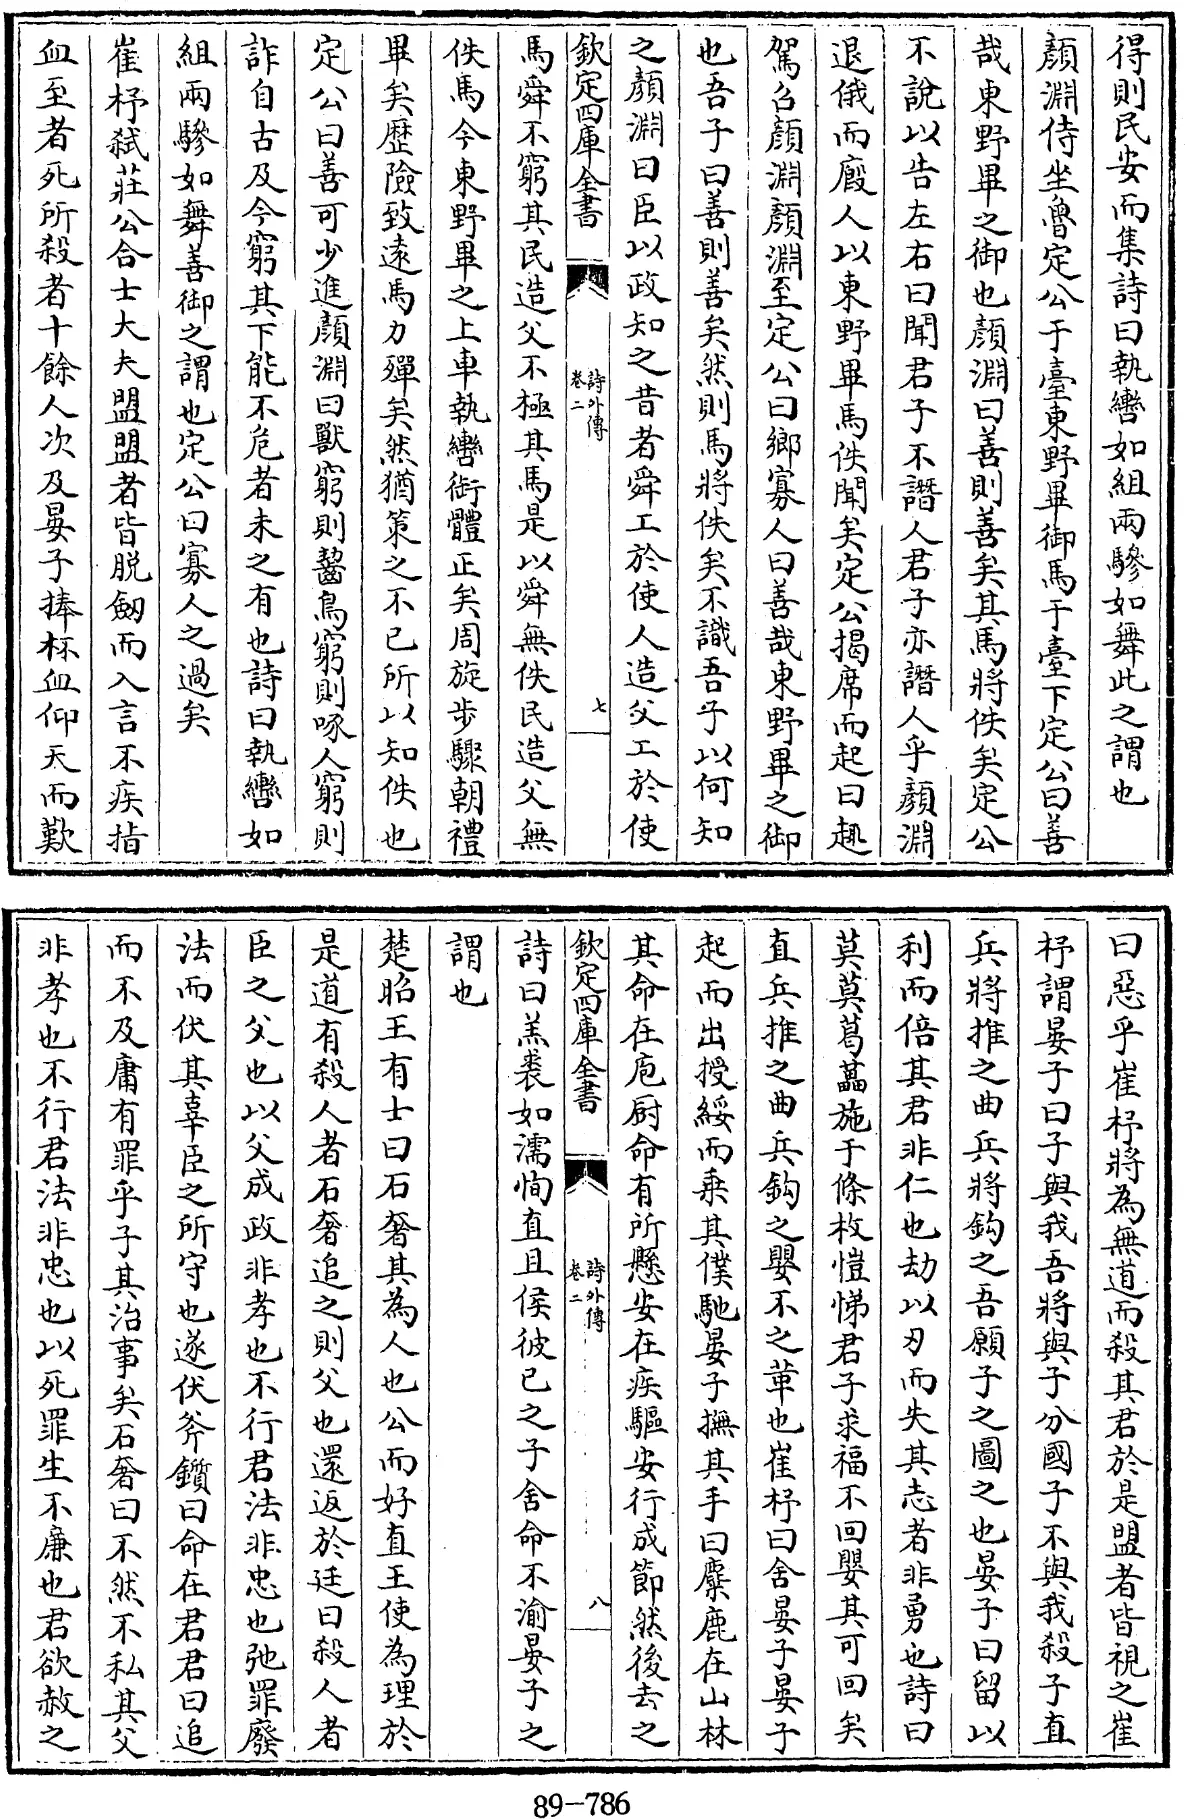 得則民安而集詩曰執轡如組兩驂如舞此之謂也
顏淵侍坐魯定公于臺東野畢御馬于臺下定公曰善
哉東野畢之御也顏淵曰善則善矣其馬將佚矣定公
不說以告左右曰聞君子不譖人君子亦譖人乎顏淵
退俄而廏人以東野畢馬佚聞矣定公揭席而起曰趣
駕召顏淵顏淵至定公曰鄉寡人曰善哉東野畢之御
也吾子曰善則善矣然則馬將佚矣不識吾子以何知
之顏淵曰臣以政知之昔者舜工於使人造父工於使
欽定四庫全書
詩外傳
卷二
七
馬舜不窮其民造父不極其馬是以舜無佚民造父無
佚馬今東野畢之上車執轡銜體正矣周旋步驟朝禮
畢矣歷險致遠馬力殫矣然猶策之不已所以知佚也
定公曰善可少進顏淵曰獸窮則齧鳥窮則啄人窮則
詐自古及今窮其下能不危者未之有也詩曰執轡如
組兩驂如舞善御之謂也定公曰寡人之過矣
崔杼弒莊公合士大夫盟盟者皆脱劒而入言不疾指
血至者死所殺者十餘人次及晏子捧杯血仰天而歎
曰惡乎崔杼將為無道而殺其君於是盟者皆視之崔
杼謂晏子曰子與我吾將與子分國子不與我殺子直
兵將推之曲兵將鈎之吾願子之圖之也晏子曰留以
利而倍其君非仁也劫以刃而失其志者非勇也詩曰
莫莫葛藟施于條枚愷悌君子求福不回嬰其可回矣
直兵推之曲兵鈎之嬰不之革也崔杼曰舍晏子晏子
起而出授綏而乗其僕馳晏子撫其手曰麋鹿在山林
其命在庖厨命有所懸安在疾驅安行成節然後去之
欽定四庫全書
詩外傳
卷二
八
詩曰羔裘如濡恂直且侯彼已之子舍命不渝晏子之
謂也
楚昭王有士曰石奢其為人也公而好直王使為理於
是道有殺人者石奢追之則父也還返於廷曰殺人者
臣之父也以父成政非孝也不行君法非忠也弛罪廢
法而伏其辜臣之所守也遂伏斧鑕曰命在君君曰追
而不及庸有罪乎子其治事矣石奢曰不然不私其父
非孝也不行君法非忠也以死罪生不廉也君欲赦之
89-786